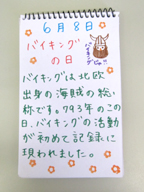 6月8日
バイキング
の日
バイキングは北欧
出身の海賊の総
称です。793年のこの
日、バイキングの活動
が初めて記録に
現われました。